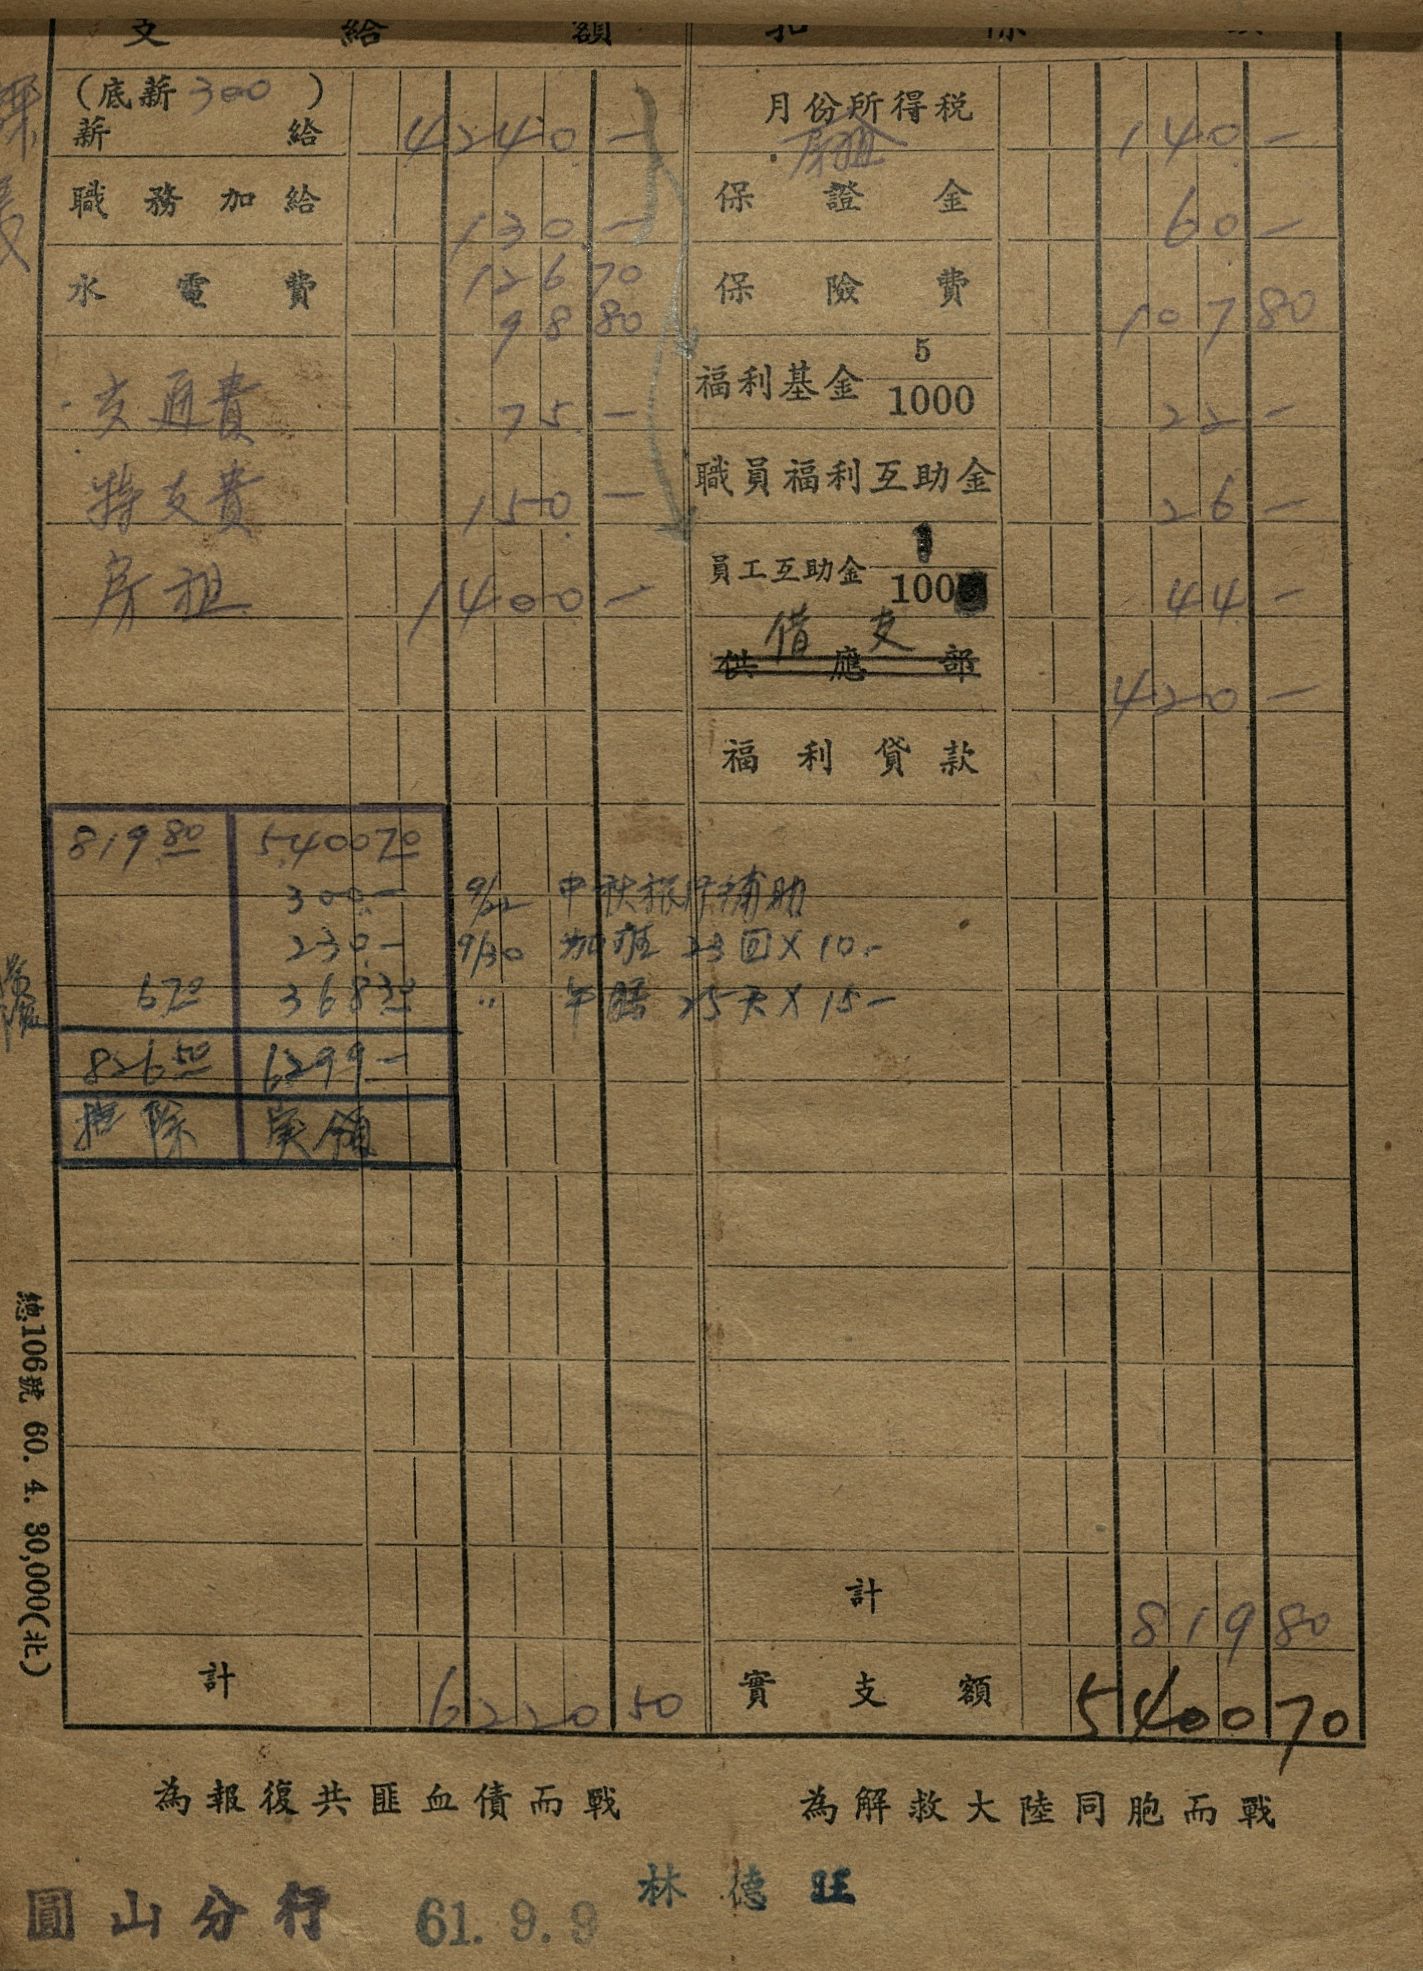 支 給 額
扣 除 額
(底薪 300 )
薪 給 4240.-
職 務 加 給 130.-
水 電 費 126 70
98 80
交通費 75.-
特支費 150.-
房租 1400-
計 6220 50
月份所得税 140.-
房租
保 證 金 60-
保 險 費 107 80
福利基金 5/1000 22-
職員福利互助金 26-
員工互助金 1/100 44-
供 應 部
借 支 420-
福 利 貸 款
819.80 5,400 70
300.- 9/22 中秋 補助
230.- 9/30 加班 23回×10.-
6 70 368 30 〃 午膳 25天×15-
826 50 6299-
扣除 実領
計 819 80
實 支 額 5400 70
總106號 60. 4. 30,000(北)
為報復共匪血債而戰
為解救大陸同胞而戰
林 德 旺
圓山分行 61. 9. 9